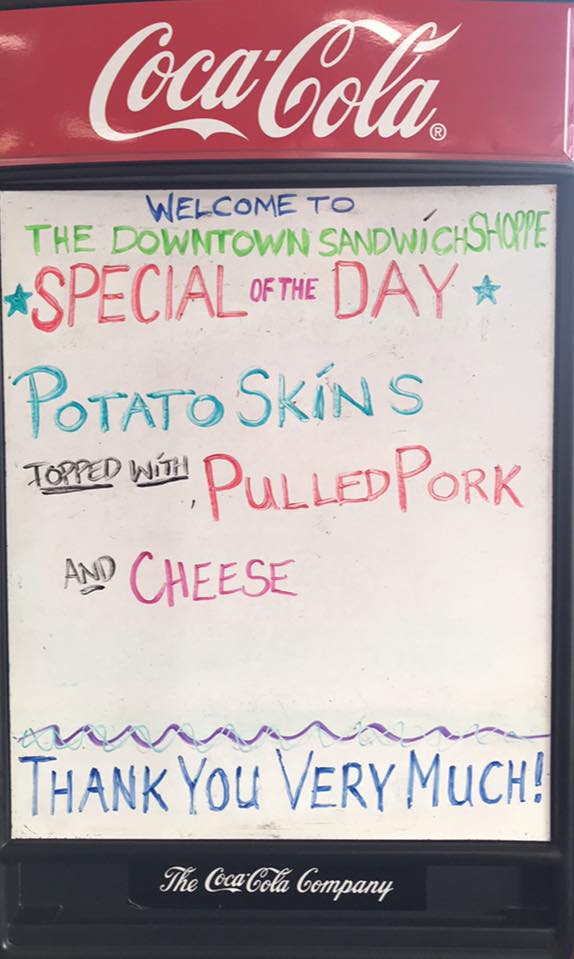 Coca-Cola®
WELCOME TO
THE DOWNTOWN SANDWICH SHOPPE
SPECIAL OF THE DAY
POTATO SKINS
TOPPED WITH PULLED PORK
AND CHEESE
THANK YOU VERY MUCH!
The Coca-Cola Company